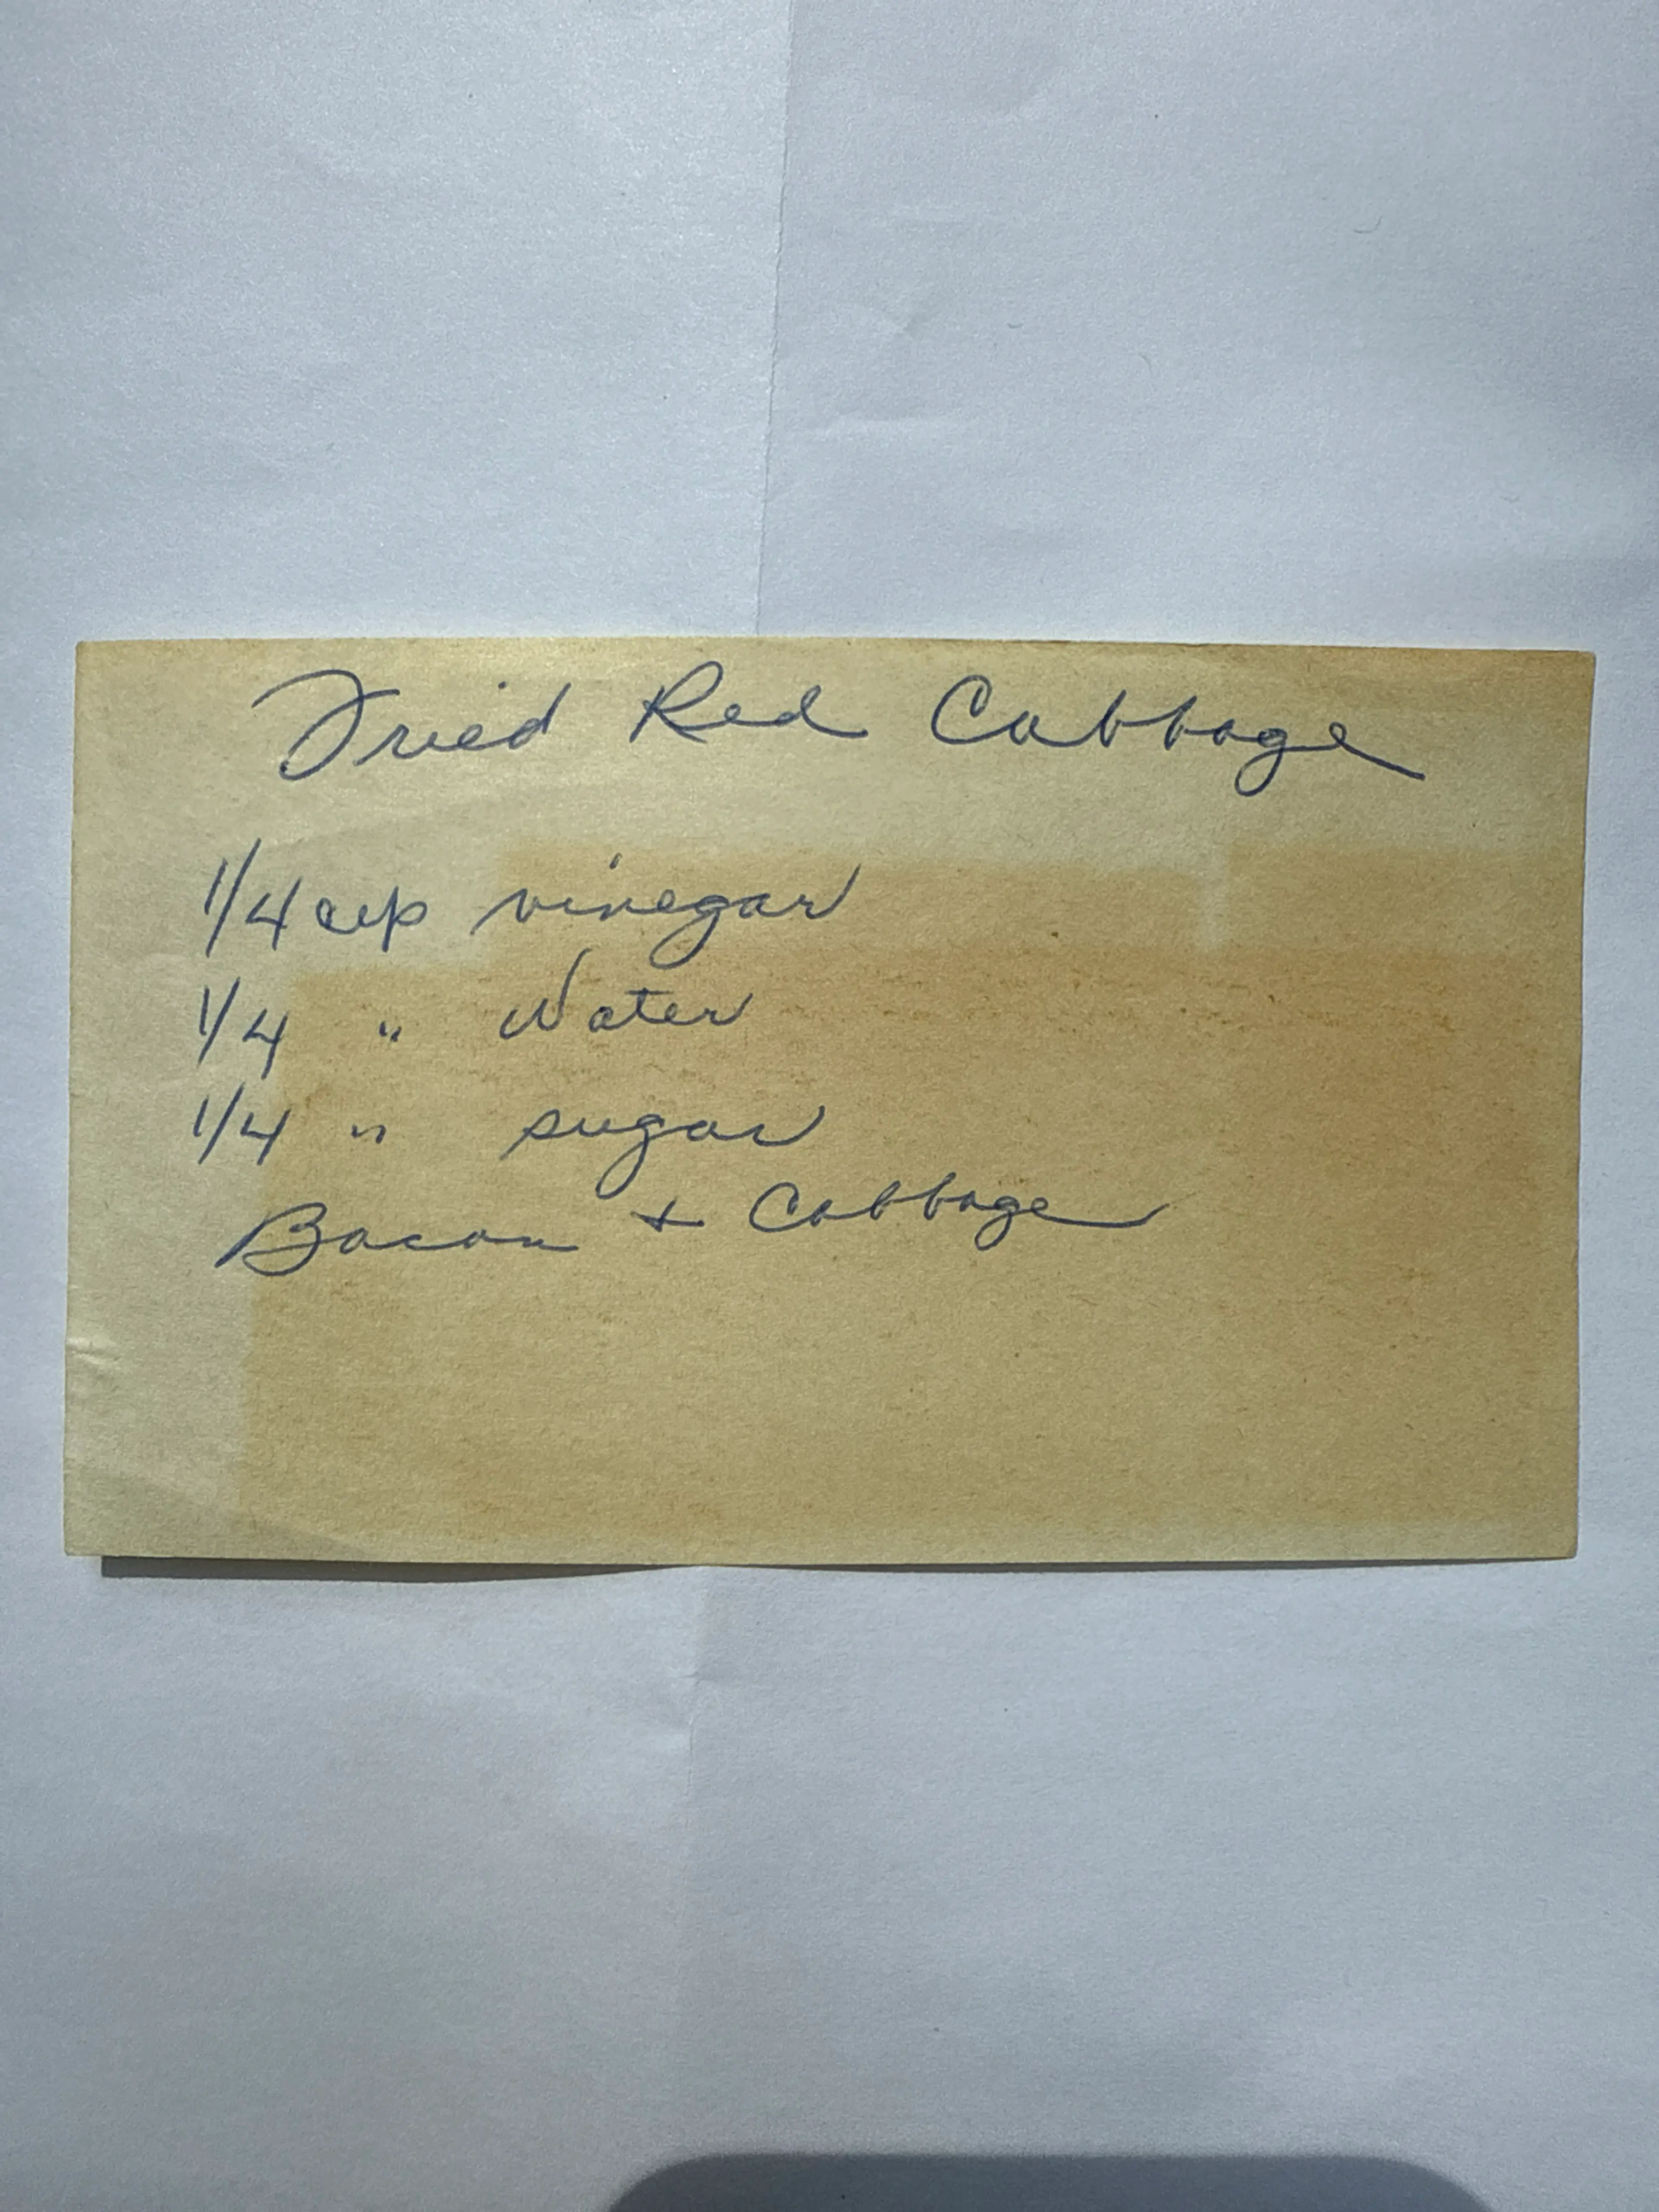 Fried Red Cabbage
1/4 cup vinegar
1/4 " Water
1/4 " sugar
Bacon + Cabbage